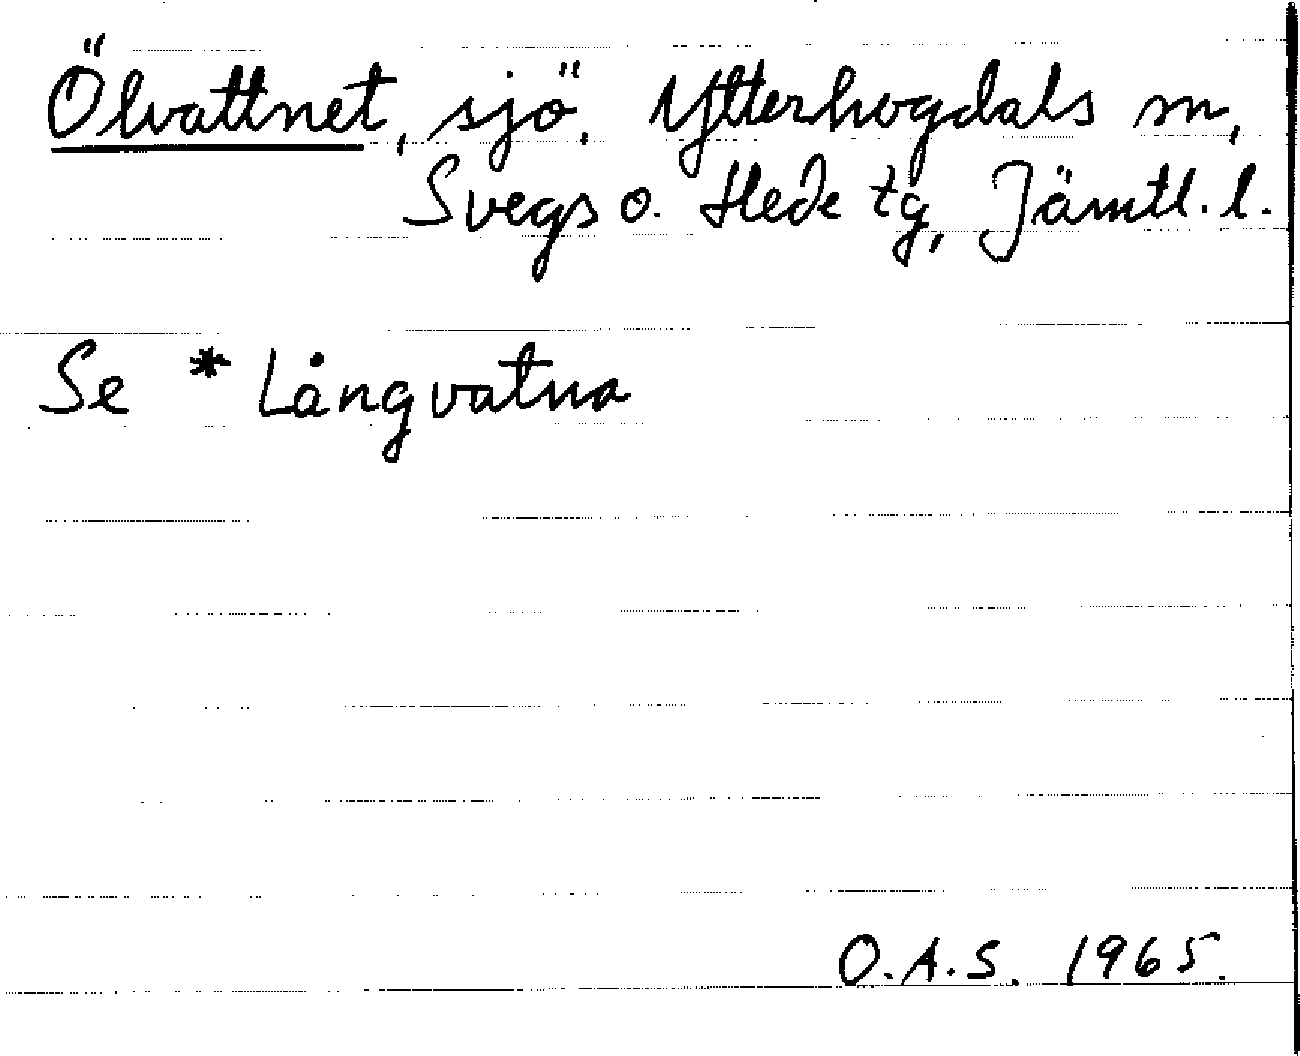 Ölvattnet, sjö. Ytterhogdals sn,
Svegs o. Hede tg, Jämtl. l.
Se * Långvatna
O.A.S. 1965.